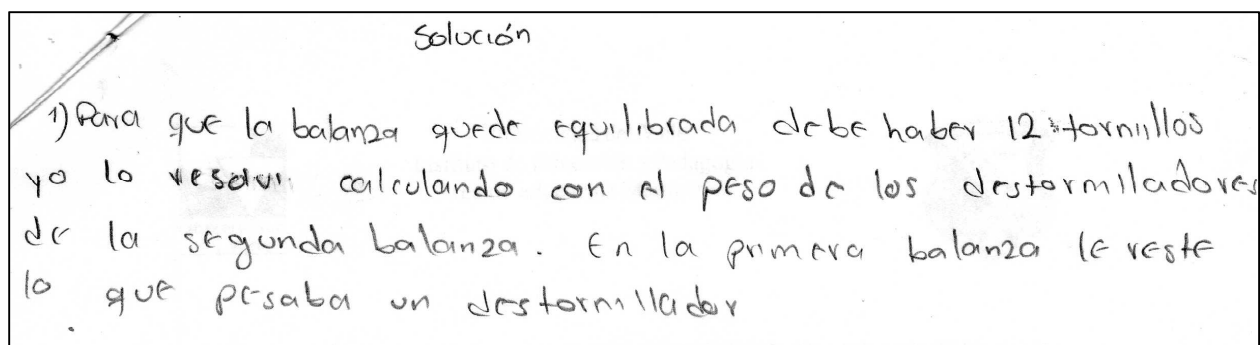 Solución
1) Para que la balanza quede equilibrada debe haber 12 tornillos
yo lo resolvi calculando con el peso de los destormiladores
de la segunda balanza. En la primera balanza le reste
lo que pesaba un destornillador